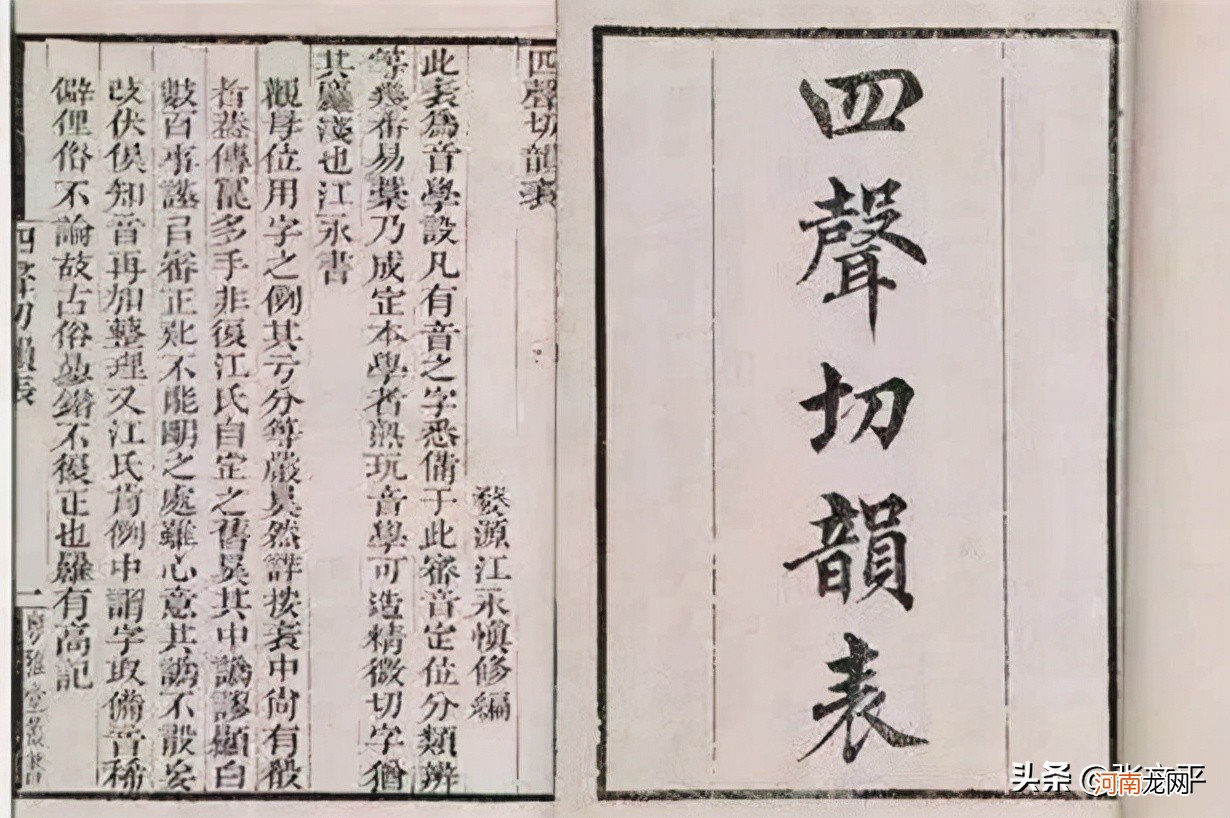 四聲切韻表
四聲切韻表
婺源江永慎修編
此表為音學設凡有音之字悉備于此審音定位分類辨
等幾番易藁乃成定本學者熟玩音學可造精微切字猶
其麤淺也江永書
觀母位用字之例其亏分等嚴矣然詳按表中尚有殽
者葢傳寫多手非復江氏自定之舊矣其中譌謬顯白
數百事謹㠯審正其不能朙之處雖心意其譌不敢妄
改伏俟知音再加整理又江氏凡例中謂字取備音稀
僻俚俗不論故古俗錯不復正也羅有高記
四聲切韻表
一
粤雅堂叢書
头条 @张 平
河南龙网